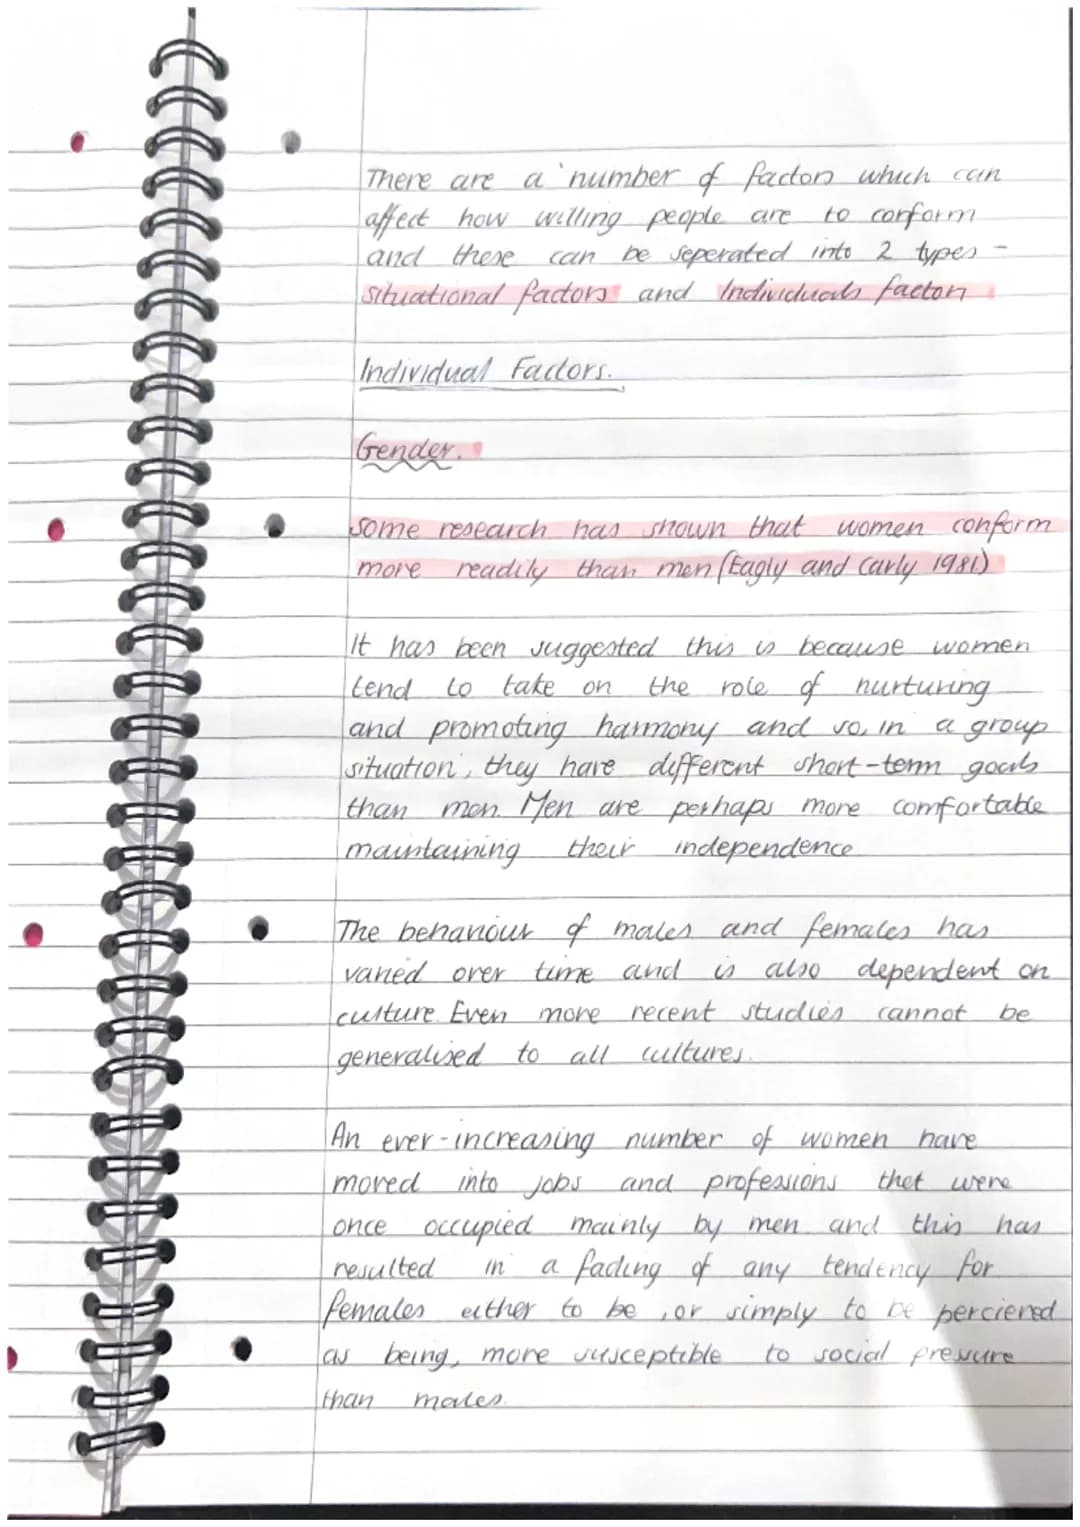 There are a number of factors which can
affect how willing people are to conform
and these can be seperated into 2 types -
situational factors and Individuals factors
Individual Factors.
Gender.
some research has shown that women conform
more readily than men (Eagly and Carly 1981)
It has been suggested this is because women
tend to take on the role of nurturing
and promoting harmony and so, in a group
situation, they have different short-term goals
than men. Men are perhaps more comfortable
maintaining their independence
The behaviour of males and females has
varied over time and is also dependent on
culture. Even more recent studies cannot be
generalised to all cultures.
An ever-increasing number of women have
moved into jobs and professions thet were
once occupied mainly by men and this has
resulted in a fading of any tendency for
females either to be, or simply to be percieved
as being, more susceptible to social pressure
than males.